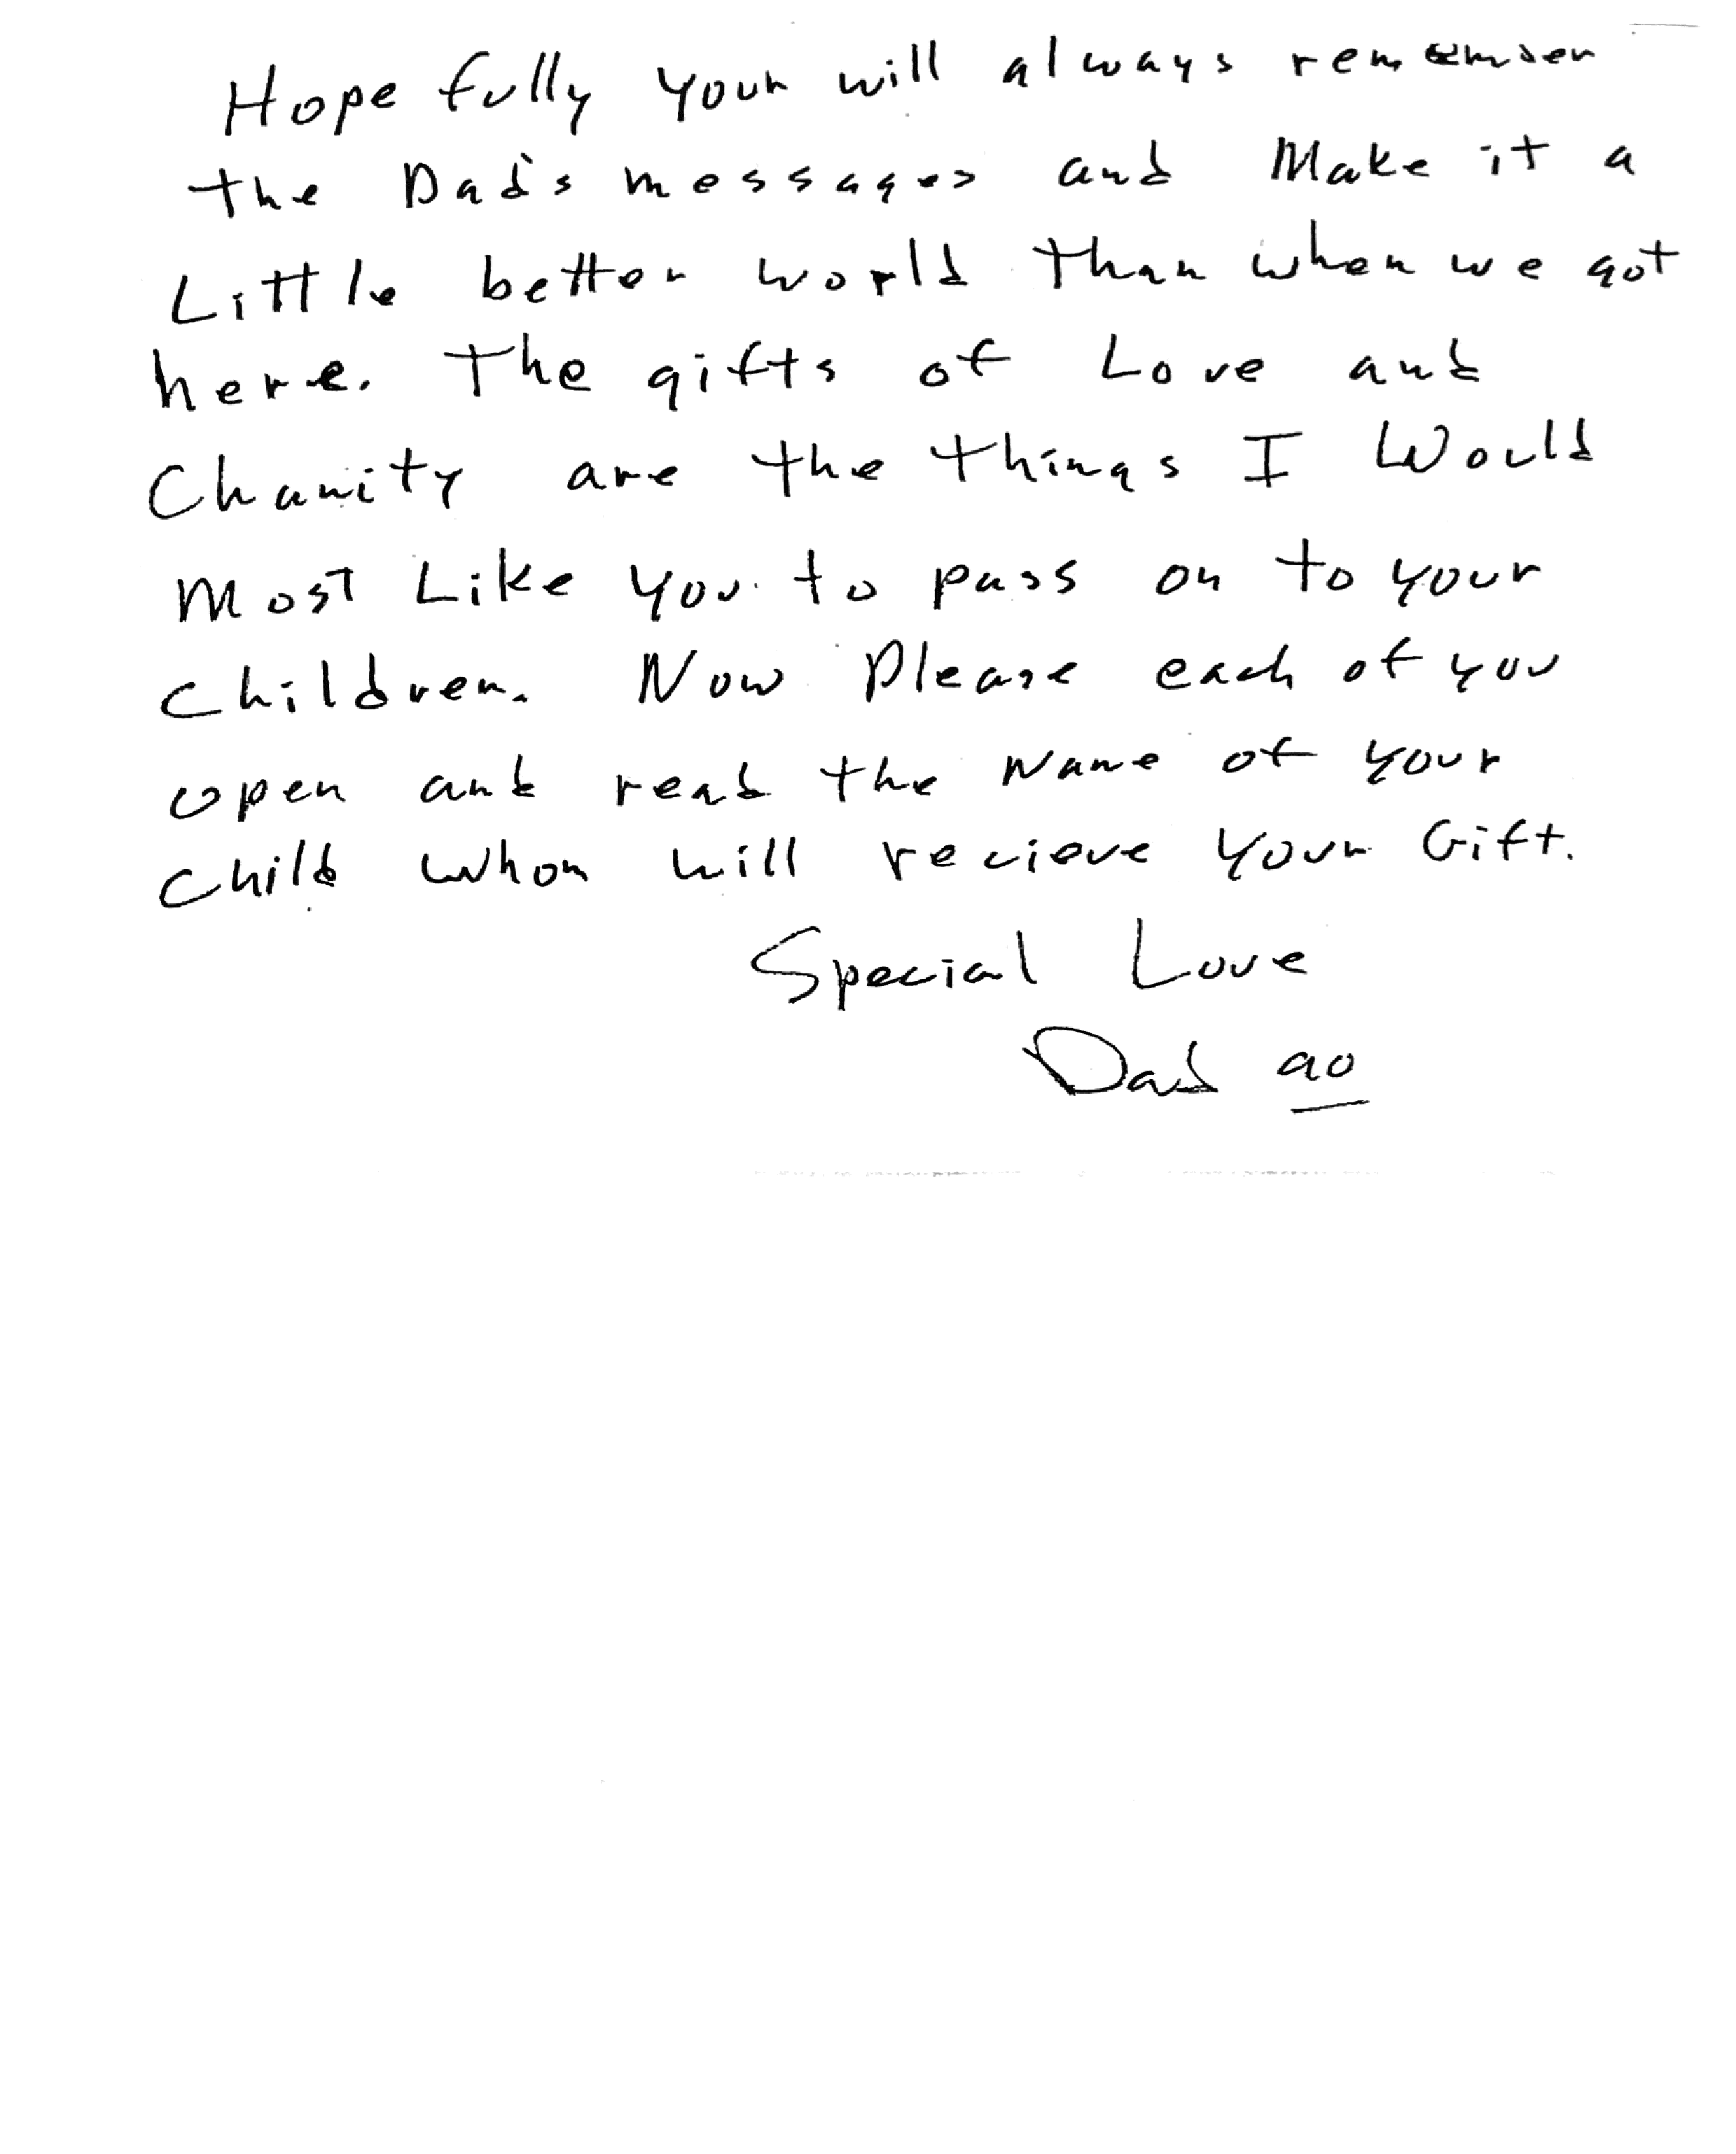 Hope fully your will always rememember
the Dad's messages and Make it a
Little better world than when we got
here. The gifts of Love and
Charity are the things I Would
Most Like you to pass on to your
children. Now Please each of you
open and read the Name of your
child whom will recieve your Gift.
Special Love
Dad 90